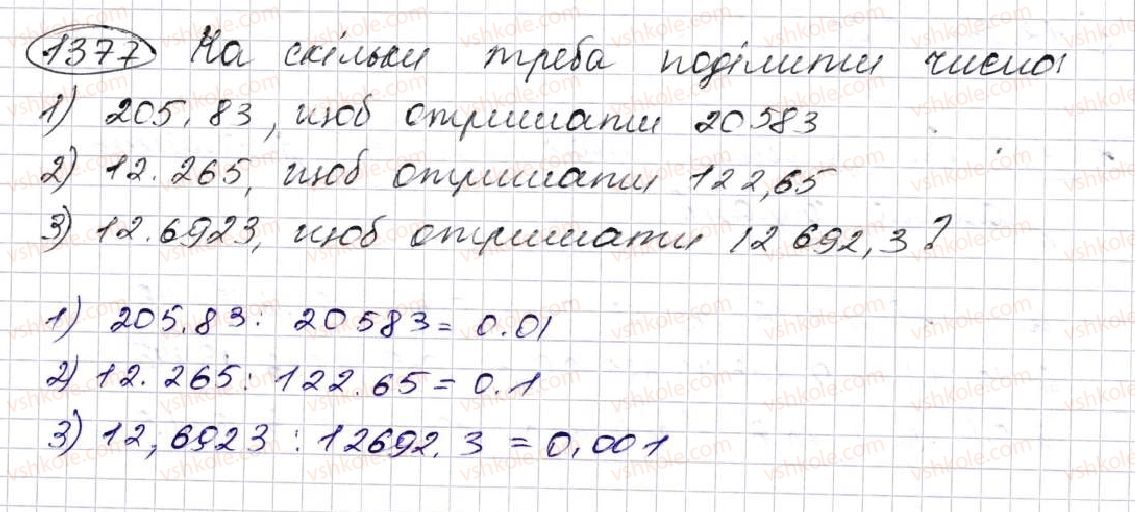 1377 На скільки треба поділити число:
1) 205,83, щоб отримати 20583
2) 12.265, щоб отримати 122,65
3) 12.6923, щоб отримати 12 692,3?
1) 205,83 : 20583 = 0.01
2) 12.265 : 122.65 = 0.1
3) 12,6923 : 12692.3 = 0,001